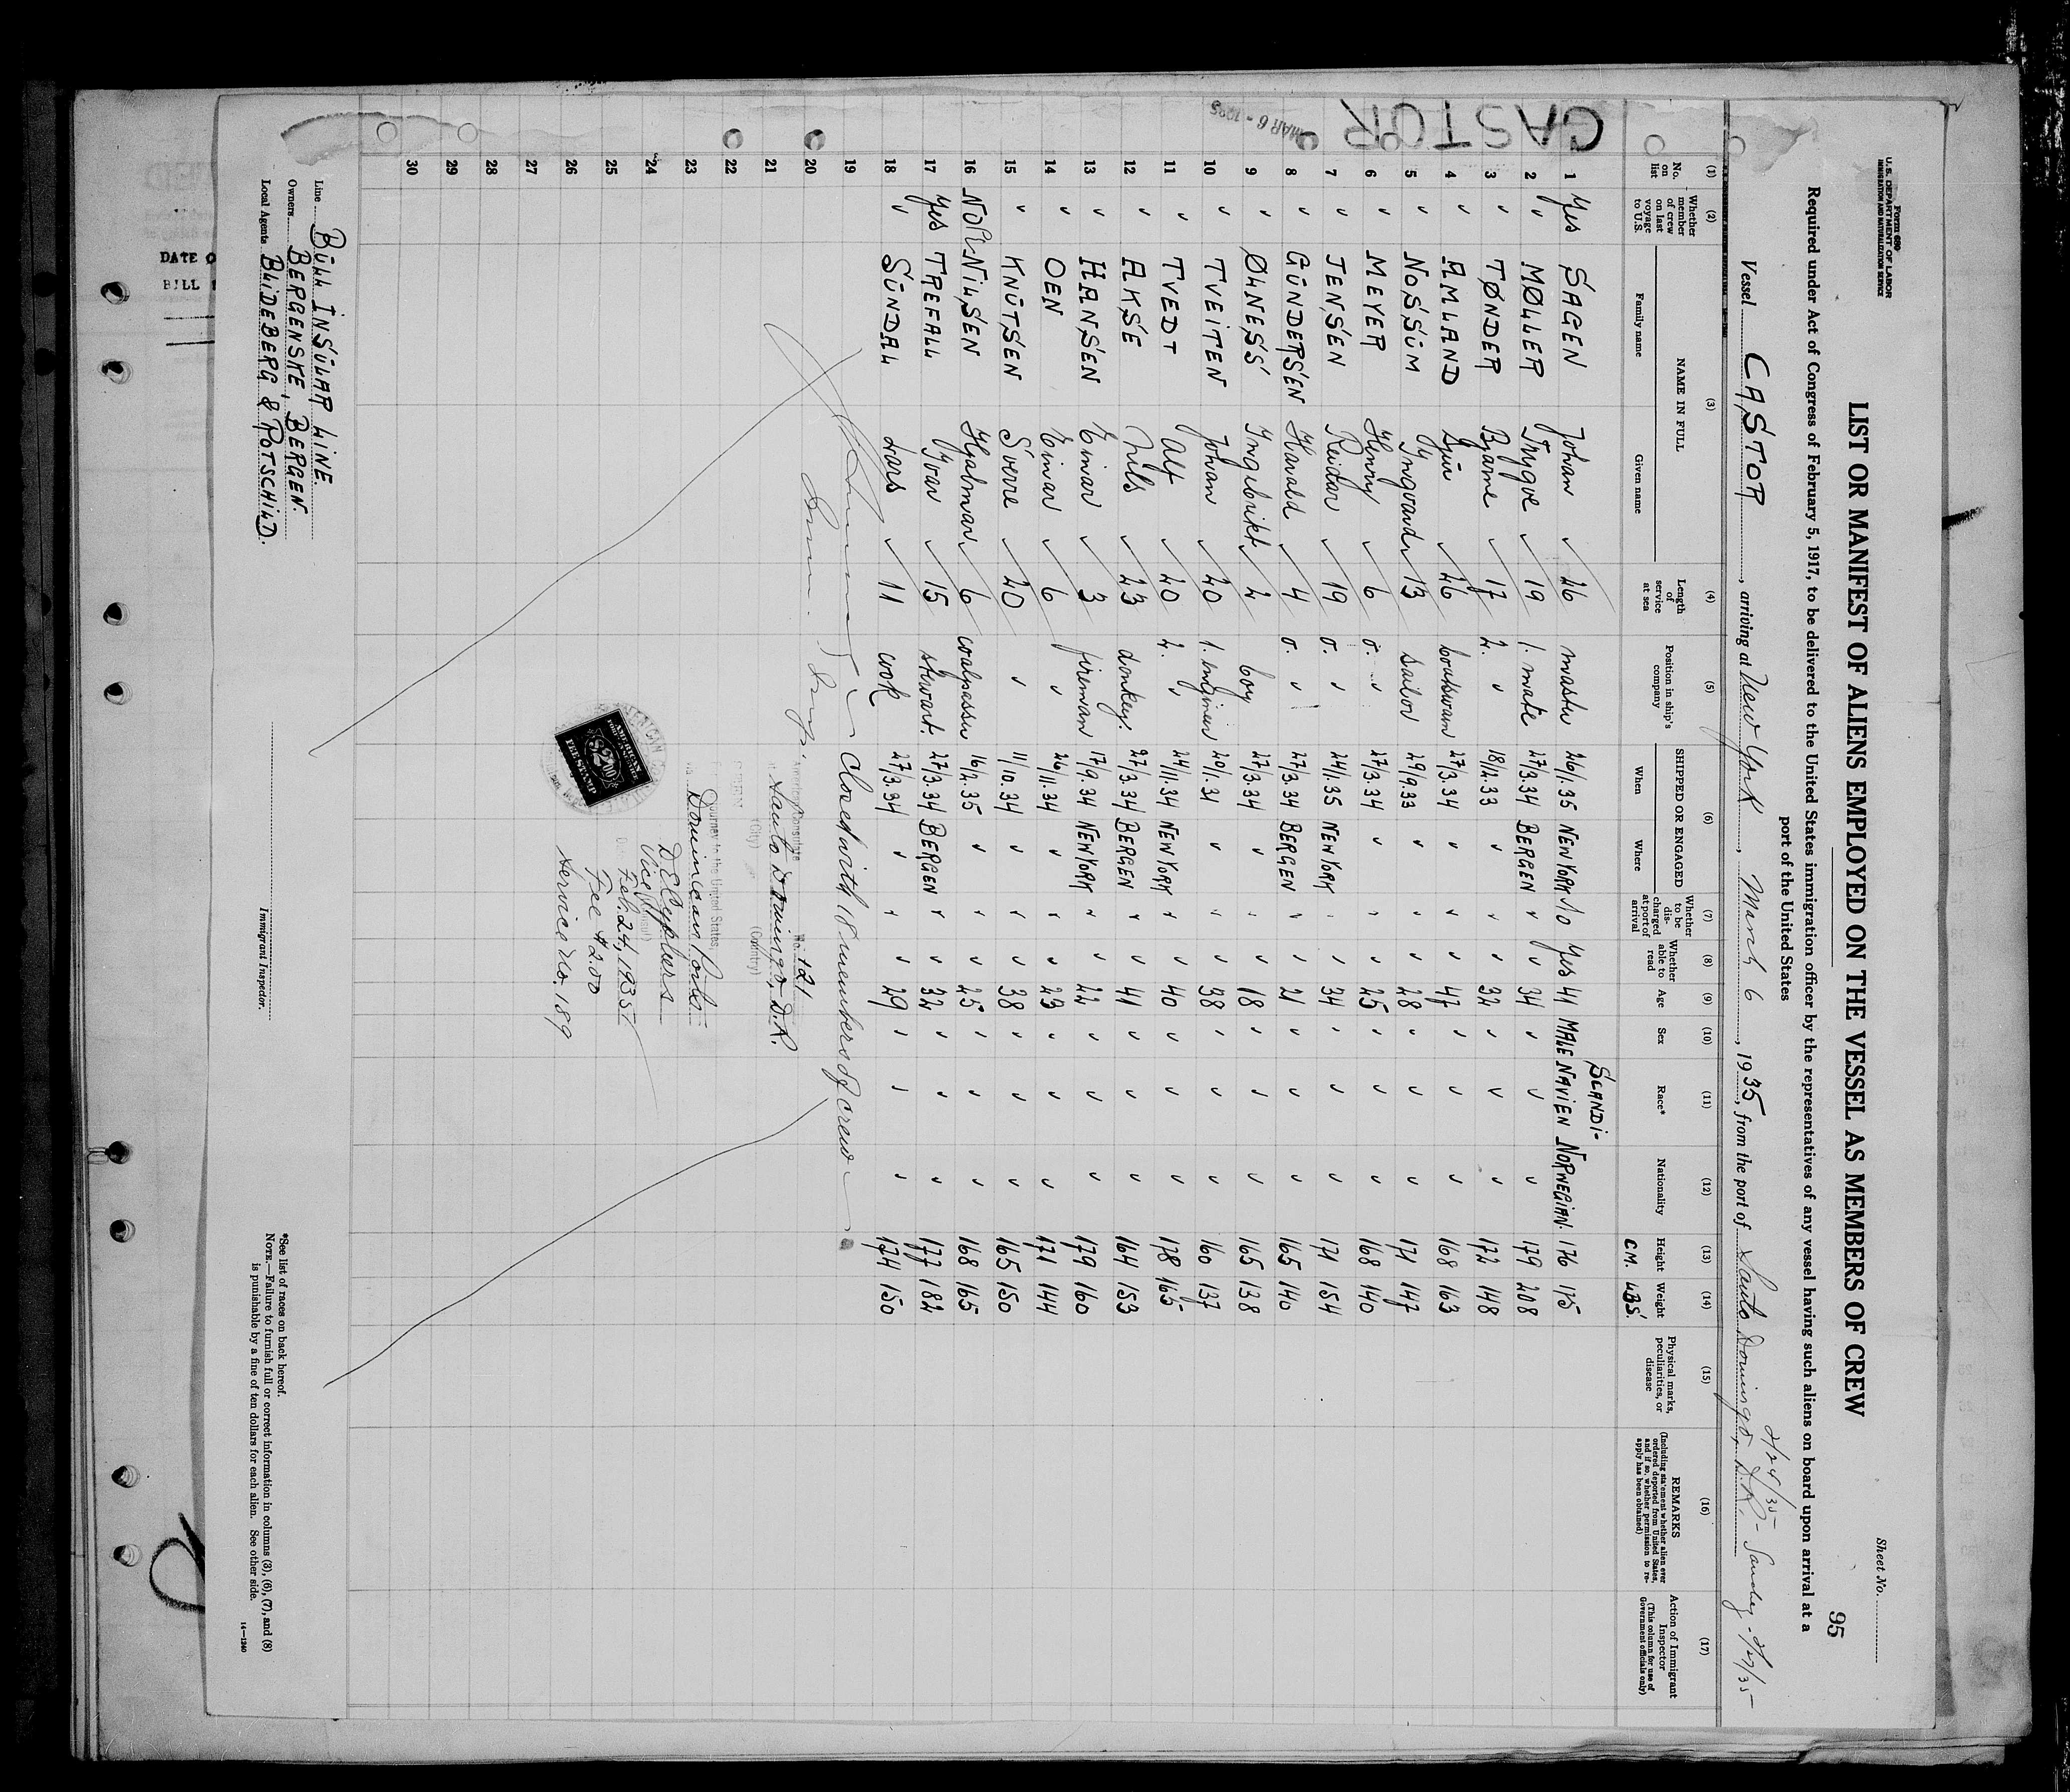 Form 689
U.S. DEPARTMENT OF LABOR
IMMIGRATION AND NATURALIZATION SERVICE
Sheet No.
95
LIST OR MANIFEST OF ALIENS EMPLOYED ON THE VESSEL AS MEMBERS OF CREW
Required under Act of Congress of February 5, 1917, to be delivered to the United States immigration officer by the representatives of any vessel having such aliens on board upon arrival at a
port of the United States
Vessel CASTOR, arriving at New York, March 6, 1935, from the port of Santo Domingo, D.R.
CASTOR
MAR 6 - 1935
(1) (2) (3) (4) (5) (6) (7) (8) (9) (10) (11) (12) (13) (14) (15) (16) (17)
No. on list
Whether member of crew on last voyage to U.S.
NAME IN FULL
Family name
Given name
Length of service at sea
Position in ship's company
SHIPPED OR ENGAGED
When
Where
Whether to be discharged at port of arrival
Whether able to read
Age
Sex
Race*
Nationality
Height
CM.
Weight
LBS.
Physical marks, peculiarities, or disease
REMARKS
(Including statement whether alien ever ordered deported from United States, and if so, whether permission to reapply has been obtained)
Action of Immigrant Inspector
(This column for use of Government officials only)
1 Yes SAGEN Johan ✓ 26 master 26/1.35 NEW YORK No Yes 41 MALE SCANDI-NAVIEN NORWEGIAN. 176 175
2 " MØLLER Trygve ✓ 19 1. mate 27/3.34 BERGEN " " 34 " " " 179 208
3 " TØNDER Bjarne ✓ 17 2. " 18/2.33 " " " 32 " " " 172 148
4 " AMLAND ✓ 26 boatswain 27/3.34 " " " 47 " " " 168 163
5 " NOSSUM Ingvard ✓ 13 sailor 29/9.33 " " " 28 " " " 171 147
6 " MEYER Henry ✓ 6 o. " 27/3.34 " " " 25 " " " 168 140
7 " JENSEN Reidar ✓ 19 o. " 24/1.35 NEW YORK " " 34 " " " 171 154
8 " GUNDERSEN Harald ✓ 4 o. " 27/3.34 BERGEN " " 21 " " " 165 140
9 " ØLNESS Ingebrikt ✓ 2 boy 27/3.34 " " " 18 " " " 165 138
10 " TVEITEN Johan ✓ 20 1. engineer 20/1.31 " " " 38 " " " 160 137
11 " TVEDT Alf 20 2. " 24/11.34 NEW YORK " " 40 " " " 178 165
12 " AKSE Nils ✓ 23 donkey. 27/3.34 BERGEN " " 41 " " " 164 153
13 " HANSEN Einar ✓ 3 fireman 17/9.34 NEW YORK " " 22 " " " 179 160
14 " OEN Einar ✓ 6 " 26/11.34 " " " 23 " " " 171 144
15 " KNUTSEN Sverre ✓ 20 " 11/10.34 " " " 38 " " " 165 150
16 NO NILSEN Hjalmar ✓ 6 coalpasser 16/2.35 " " " 25 " " " 168 165
17 Yes TREFALL Yvar ✓ 15 stewart. 27/3.34 BERGEN " " 32 " " " 177 182
18 " SUNDAL Lars ✓ 11 cook 27/3.34 " " " 29 " " " 174 150
19 Closed with 18 members of crew
20
21
22
23
24
25
26
27
28
29
30
American Consulate
No. 121
at Santo Domingo, D.R.
(City) (Country)
journey to the United States,
via Dominican Ports
Vice Consul
Feb. 24, 1935
Fee $2.00
Service No. 189
AMERICAN
$2.00
FEE STAMP
Line BULL INSULAR LINE.
Owners BERGENSKE, BERGEN.
Local Agents BLIDEBERG & ROTSCHILD.
Immigrant Inspector.
*See list of races on back hereof.
NOTE.—Failure to furnish full or correct information in columns (3), (6), (7), and (8)
is punishable by a fine of ten dollars for each alien. See other side.
14—1240
DATE O
BILL